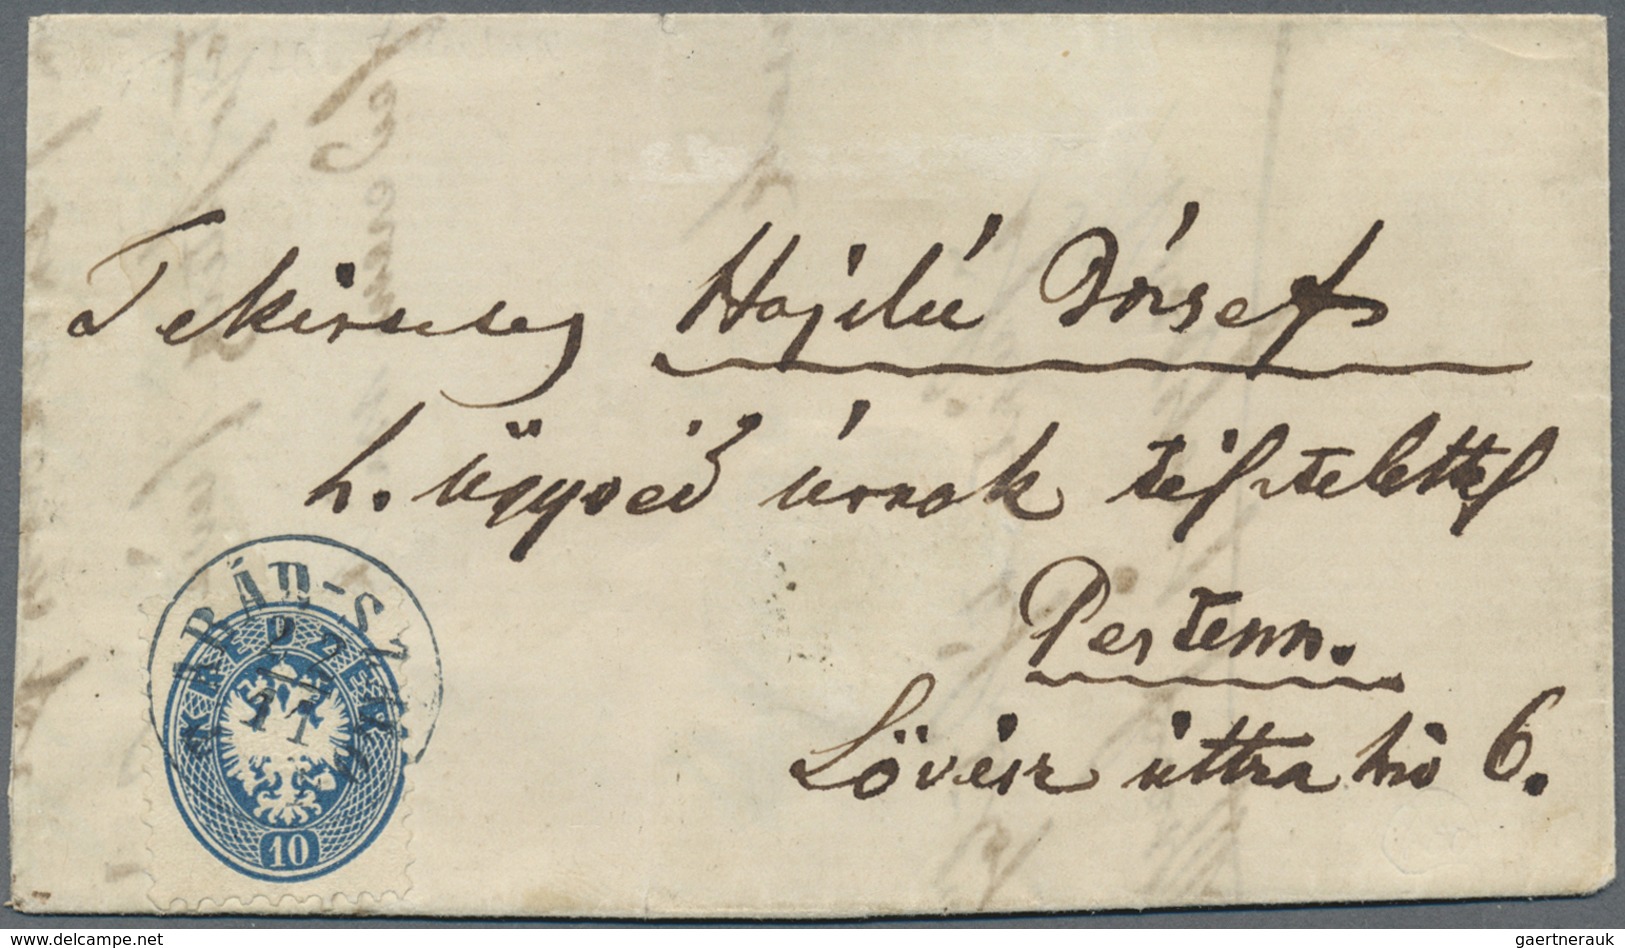 Tekintetes Hajdú József
h. ügyvéd úrnak tisztelettel
Pesten.
Lövész uttza 6.
ARÁD-SZ
KREUZER
11
10
delcampe.net
gaertnerauk